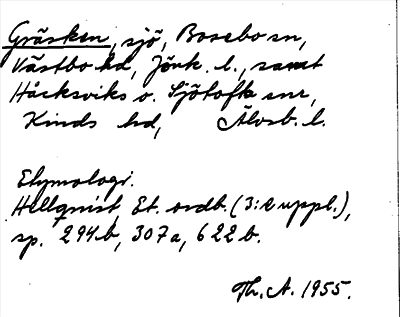 Gräsken, sjö, Bosebo sn,
Västbo hd, Jönk. l., samt
Håcksviks o. Sjötofta snr,
Kinds hd, Älvsb. l.
Etymologi.
Hellquist, Et. ordb. (3:e uppl.),
sp. 294b, 307a, 622b.
Th. A. 1955.